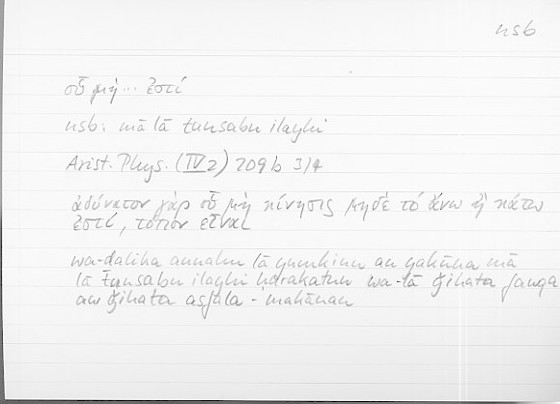 nsb
οὗ μή... ἐστί
nsb: mā lā tunsabu ilayhi
Arist. Phys. (IV 2) 209 b 3/4
ἀδύνατον γὰρ οὗ μὴ κίνησις μηδὲ τὸ ἄνω ἢ κάτω
ἐστί, τόπον εἶναι
wa-dalika annahu lā yumkinu an yakūna mā
lā tunsabu ilayhi ḥarakatun wa-lā ǧihata fauqa
au ǧihata asfala - makānan